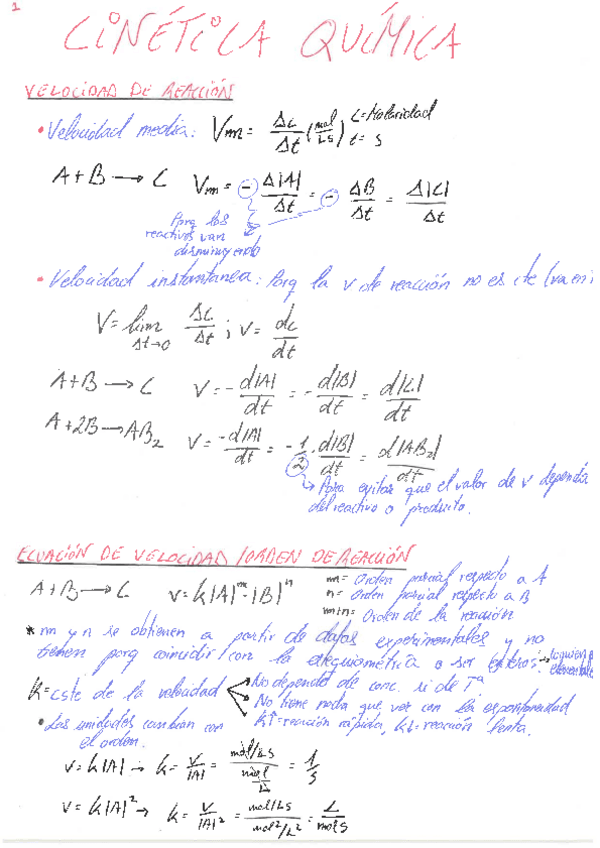 1
CINÉTICA QUÍMICA
VELOCIDAD DE REACCIÓN
• Velocidad media: Vm = ΔC/Δt (mol/Ls) C=Molaridad t=s
A+B → C Vm = - Δ|A|/Δt = - ΔB/Δt = Δ|C|/Δt
Porq los
reactivos van
disminuyendo
• Velocidad instantanea: Porq la v de reacción no es cte
V= lim Δt→0 ΔC/Δt ; V= dc/dt
A+B → C V= - d|A|/dt = - d|B|/dt = d|C|/dt
A+2B → AB2 V= -d|A|/dt = - 1/2 · d|B|/dt = d|AB2|/dt
Para evitar que el valor de v dependa
del reactivo o producto.
ECUACIÓN DE VELOCIDAD / ORDEN DE REACCIÓN
A+B → C v= k|A|^m · |B|^n
m= Orden parcial respecto a A
n= Orden parcial respecto a B
m+n= Orden de la reacción
* m y n se obtienen a partir de datos experimentales y no
tienen porq coincidir con la estequiometría o ser enteros
K= cste de la velocidad
No depende de conc. si de Tª
No tiene nada que ver con la espontaneidad
k↑=reacción rápida, k↓=reacción lenta.
• Las unidades cambian con
el orden.
v= k|A| → k= v/|A| = mol/Ls / mol/L = 1/s
v= k|A|² → k= v/|A|² = mol/Ls / mol²/L² = L/mol s